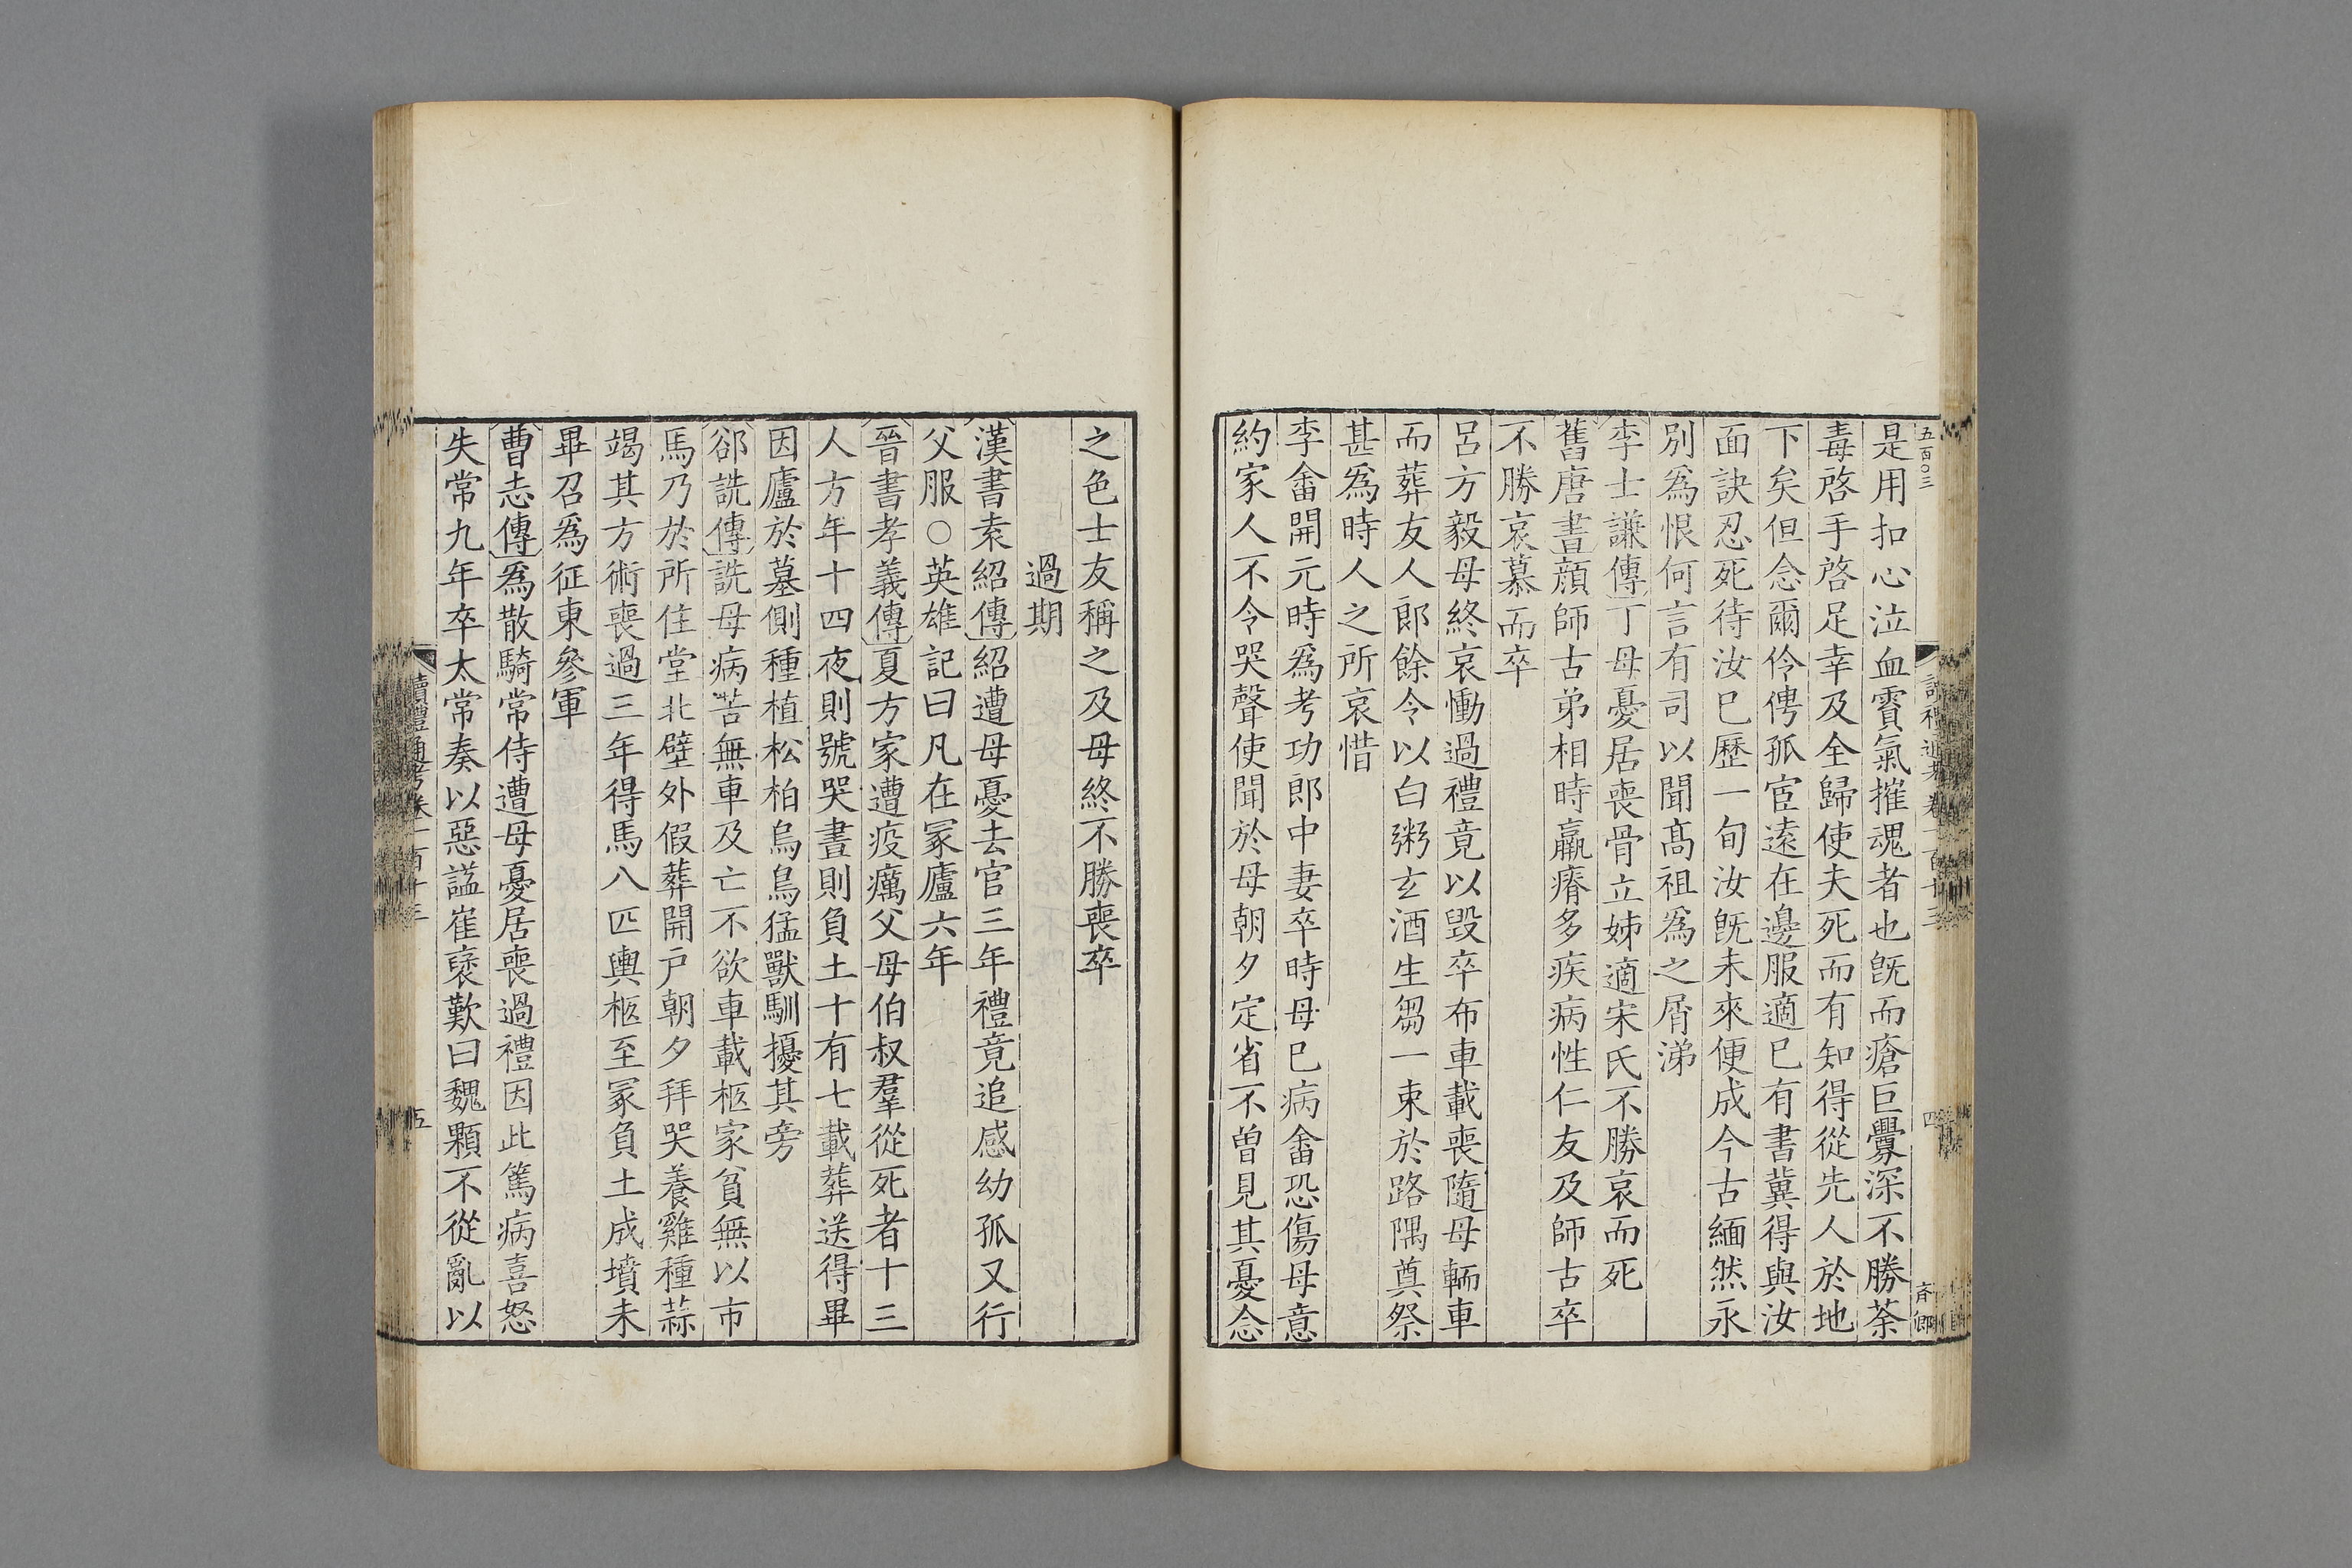 五百○三
是用扣心泣血賷氣摧魂者也既而瘡巨釁深不勝荼
毒啓手啓足幸及全歸使夫死而有知得從先人於地
下矣但念爾伶俜孤宦遠在邊服適已有書冀得與汝
面訣忍死待汝已歷一旬汝既未來便成今古緬然永
別爲恨何言有司以聞髙祖爲之屑涕
李士謙傳丁母憂居喪骨立姊適宋氏不勝哀而死
舊唐書顔師古弟相時羸瘠多疾病性仁友及師古卒
不勝哀慕而卒
呂方毅母終哀慟過禮竟以毀卒布車載喪隨母轜車
而葬友人郎餘令以白粥玄酒生芻一束於路隅奠祭
甚爲時人之所哀惜
李畬開元時爲考功郎中妻卒時母已病畬恐傷母意
約家人不令哭聲使聞於母朝夕定省不曾見其憂念
之色士友稱之及母終不勝喪卒
過期
漢書袁紹傳紹遭母憂去官三年禮竟追感幼孤又行
父服○英雄記曰凡在冢廬六年
晉書孝義傳夏方家遭疫癘父母伯叔羣從死者十三
人方年十四夜則號哭晝則負土十有七載葬送得畢
因廬於墓側種植松柏烏鳥猛獸馴擾其旁
郤詵傳詵母病苦無車及亡不欲車載柩家貧無以市
馬乃於所住堂北壁外假葬開戸朝夕拜哭養雞種蒜
竭其方術喪過三年得馬八匹輿柩至冢負土成墳未
畢召爲征東參軍
曹志傳爲散騎常侍遭母憂居喪過禮因此篤病喜怒
失常九年卒太常奏以惡諡崔裒歎曰魏顆不從亂以
讀禮通考卷一百十三
五